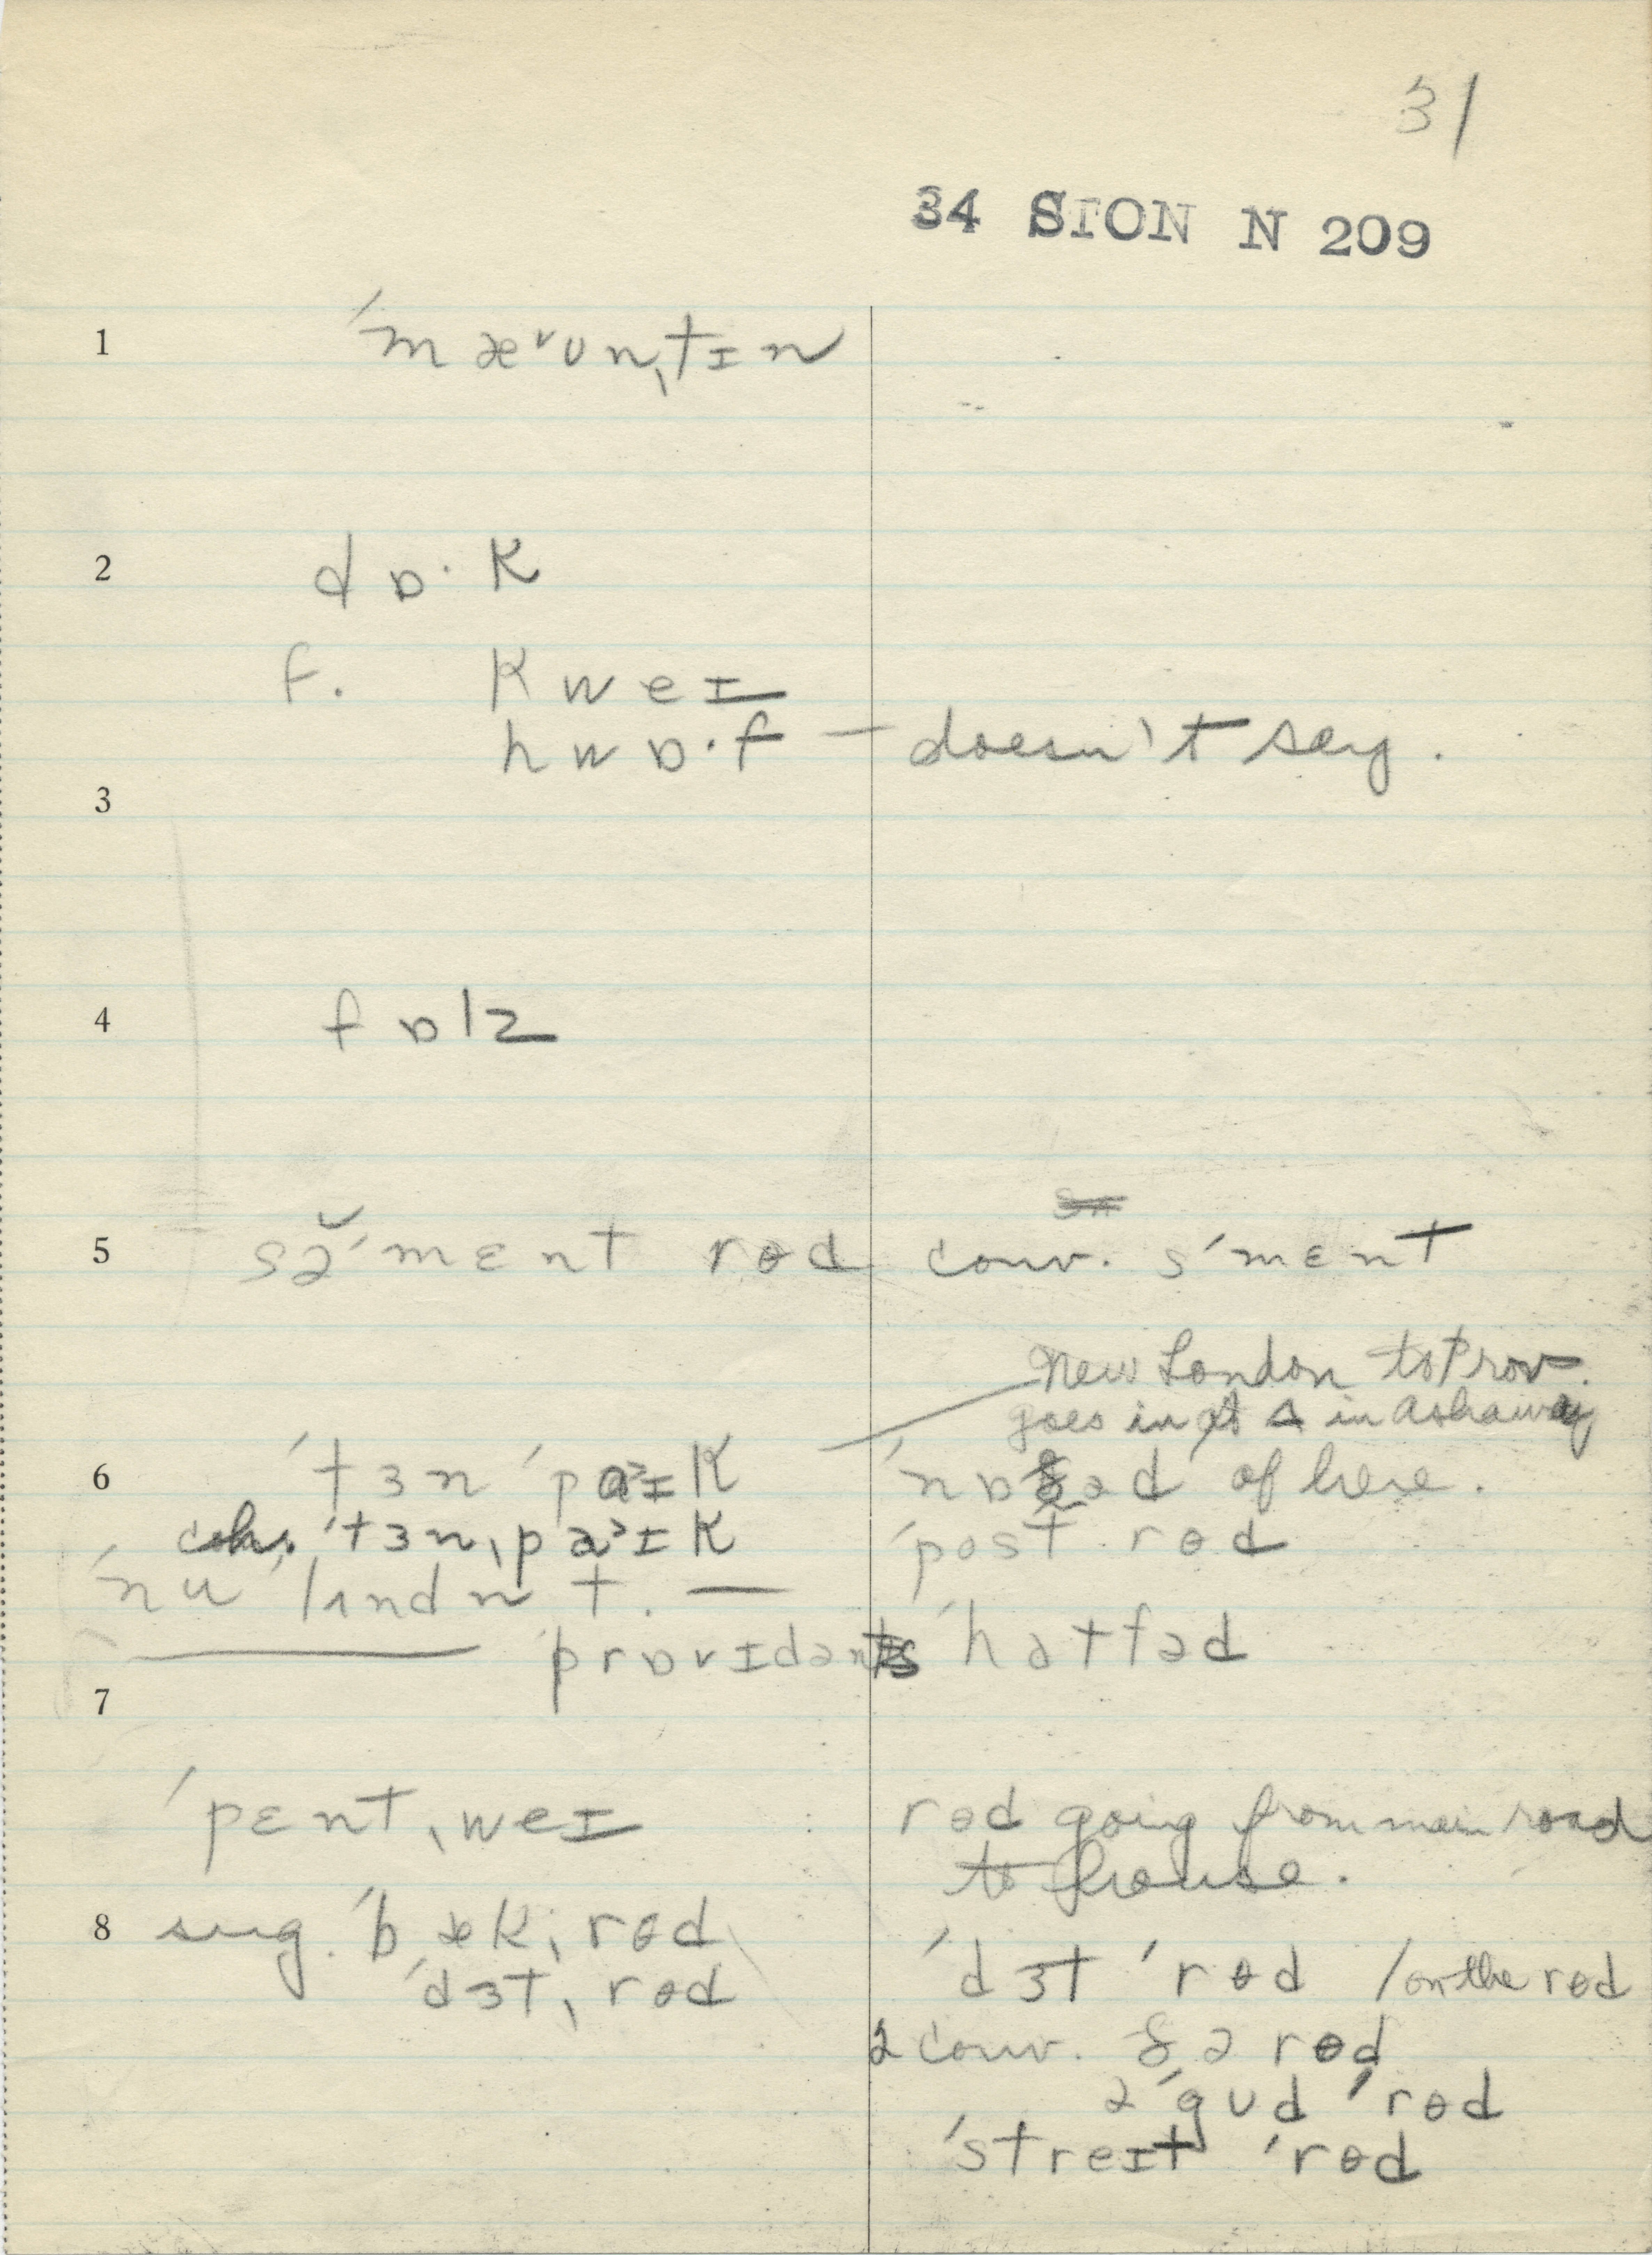 31
34 SION N 209
1 ˈmæᵛʊnˌtɪn
2 dɒ·k
f. kweɪ
hwɒ·f — doesn't say.
3
4 fɒlz
5 sə̆ˈmɛnt rɵd conv. sˈmɛnt
New London to Prov.
goes in at Δ in Ashaway
6 ˈtɜn ˈpaᵊɪk of here.
ˈtɜnˌpaᵊɪk ˈpost rɵd
ˈnu ˈlʌndn t. —
— ˈprɒvɪdəns ˈhatfəd
7
ˈpɛntˌweɪ rɵd going from main road
to house.
8 sug. ˈbækˌrɵd
ˈdɜtˌrɵd ˈdɜt ˈrɵd / on the rɵd
2 conv. ðə rɵd
ə ˈgʊd ˈrɵd
ˈstreɪt ˈrɵd